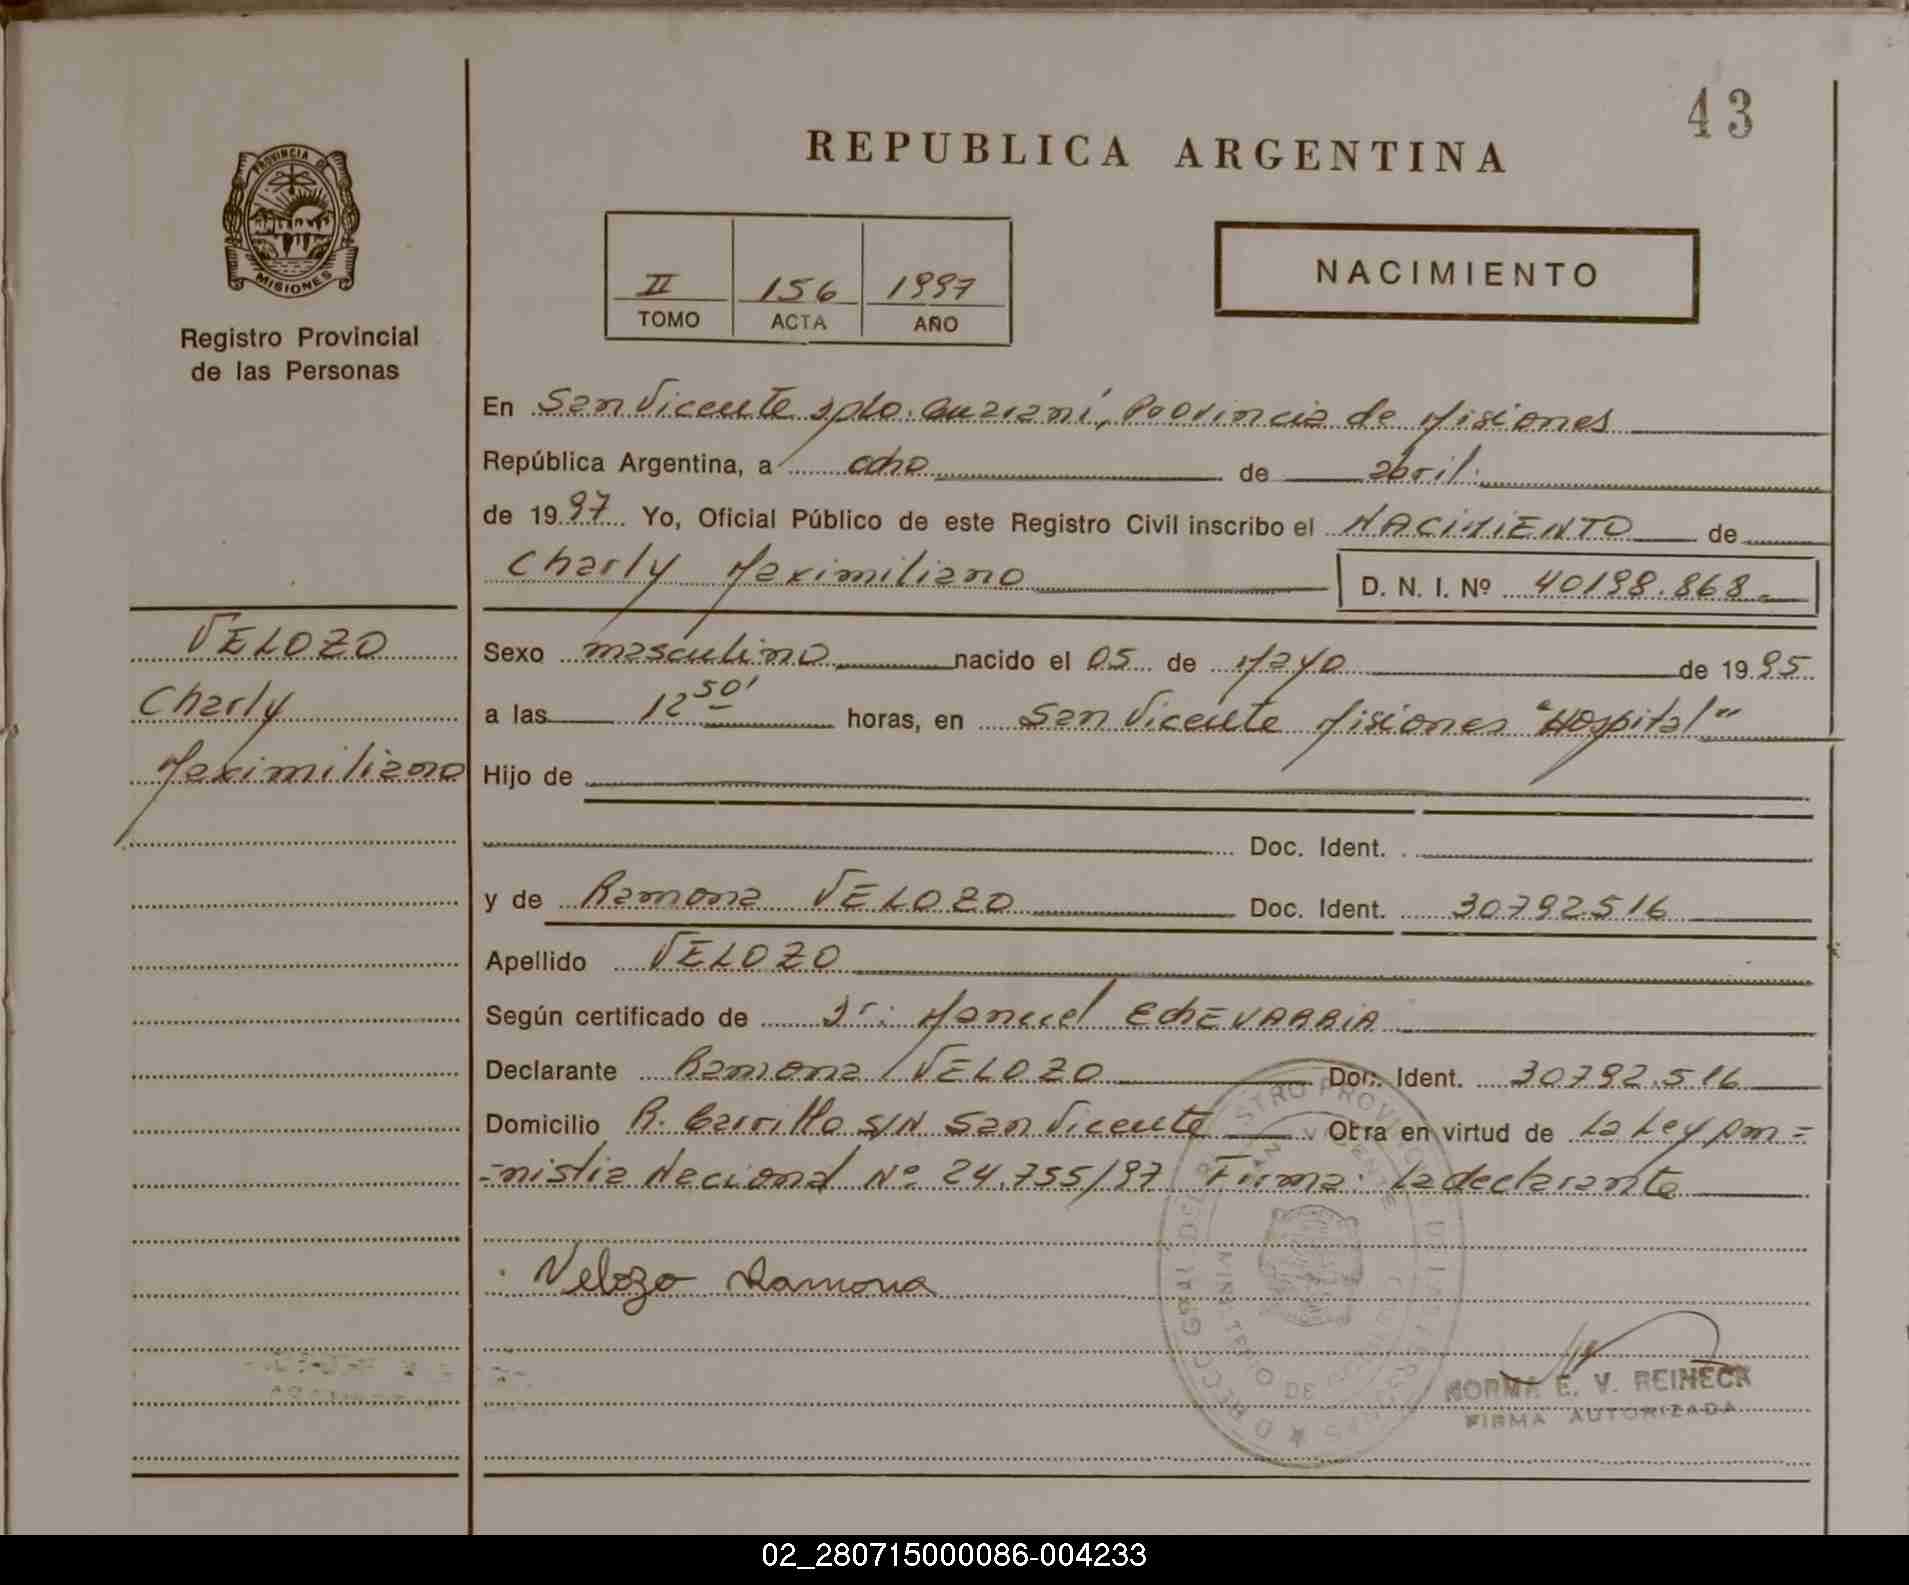 43
REPUBLICA ARGENTINA
PROVINCIA DE
MISIONES
Registro Provincial
de las Personas
II 156 1997
TOMO ACTA AÑO
NACIMIENTO
En San Vicente Dpto. Guaraní, Provincia de Misiones
República Argentina, a ocho de abril.
de 1997 Yo, Oficial Público de este Registro Civil inscribo el NACIMIENTO de
Charly Maximiliano D. N. I. Nº 40198.868.
VELOZO
Charly
Maximiliano
Sexo masculino nacido el 05 de Mayo de 1995
a las 12 50' horas, en San Vicente Misiones "Hospital"
Hijo de
Doc. Ident.
y de Ramona VELOZO Doc. Ident. 30792516
Apellido VELOZO
Según certificado de Dr: Manuel EchEVARRIA
Declarante Ramona VELOZO Doc. Ident. 30792.516
Domicilio R. Carrillo S/N San Vicente Obra en virtud de La Ley Am=
=nistia Nacional Nº 24.755/97 Firma: La declarante
Velozo Ramona
NORMA E. V. REINECK
FIRMA AUTORIZADA
02_280715000086-004233